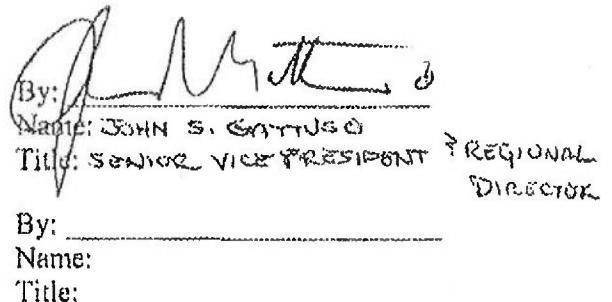 By:
Name: JOHN S. GATTUSO
Title: SENIOR VICE PRESIDENT & REGIONAL
DIRECTOR
By:
Name:
Title: